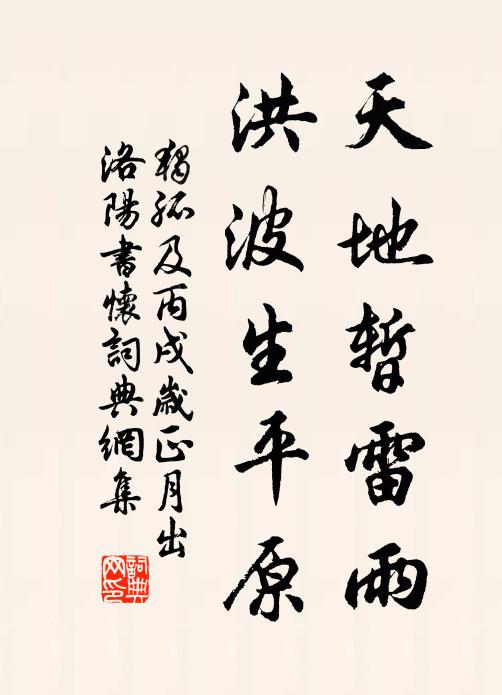 天地暫雷雨
洪波生平原
獨孤及丙戌歲正月出
洛陽書懷詞典網集
詞典網印